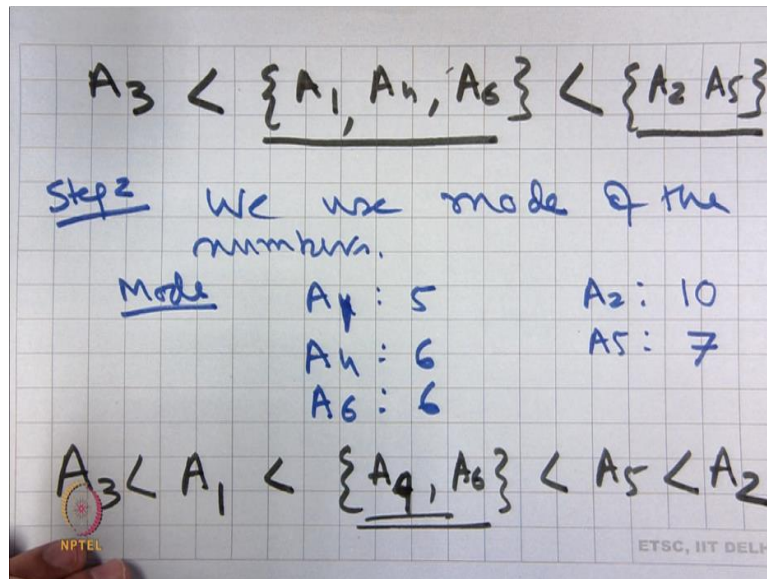 A3 < {A1, A4, A6} < {A2 A5}
Step 2 We use mode of the
numbers.
Mode A1 : 5 A2 : 10
A4 : 6 A5 : 7
A6 : 6
A3 < A1 < {A4, A6} < A5 < A2
NPTEL
ETSC, IIT DELH